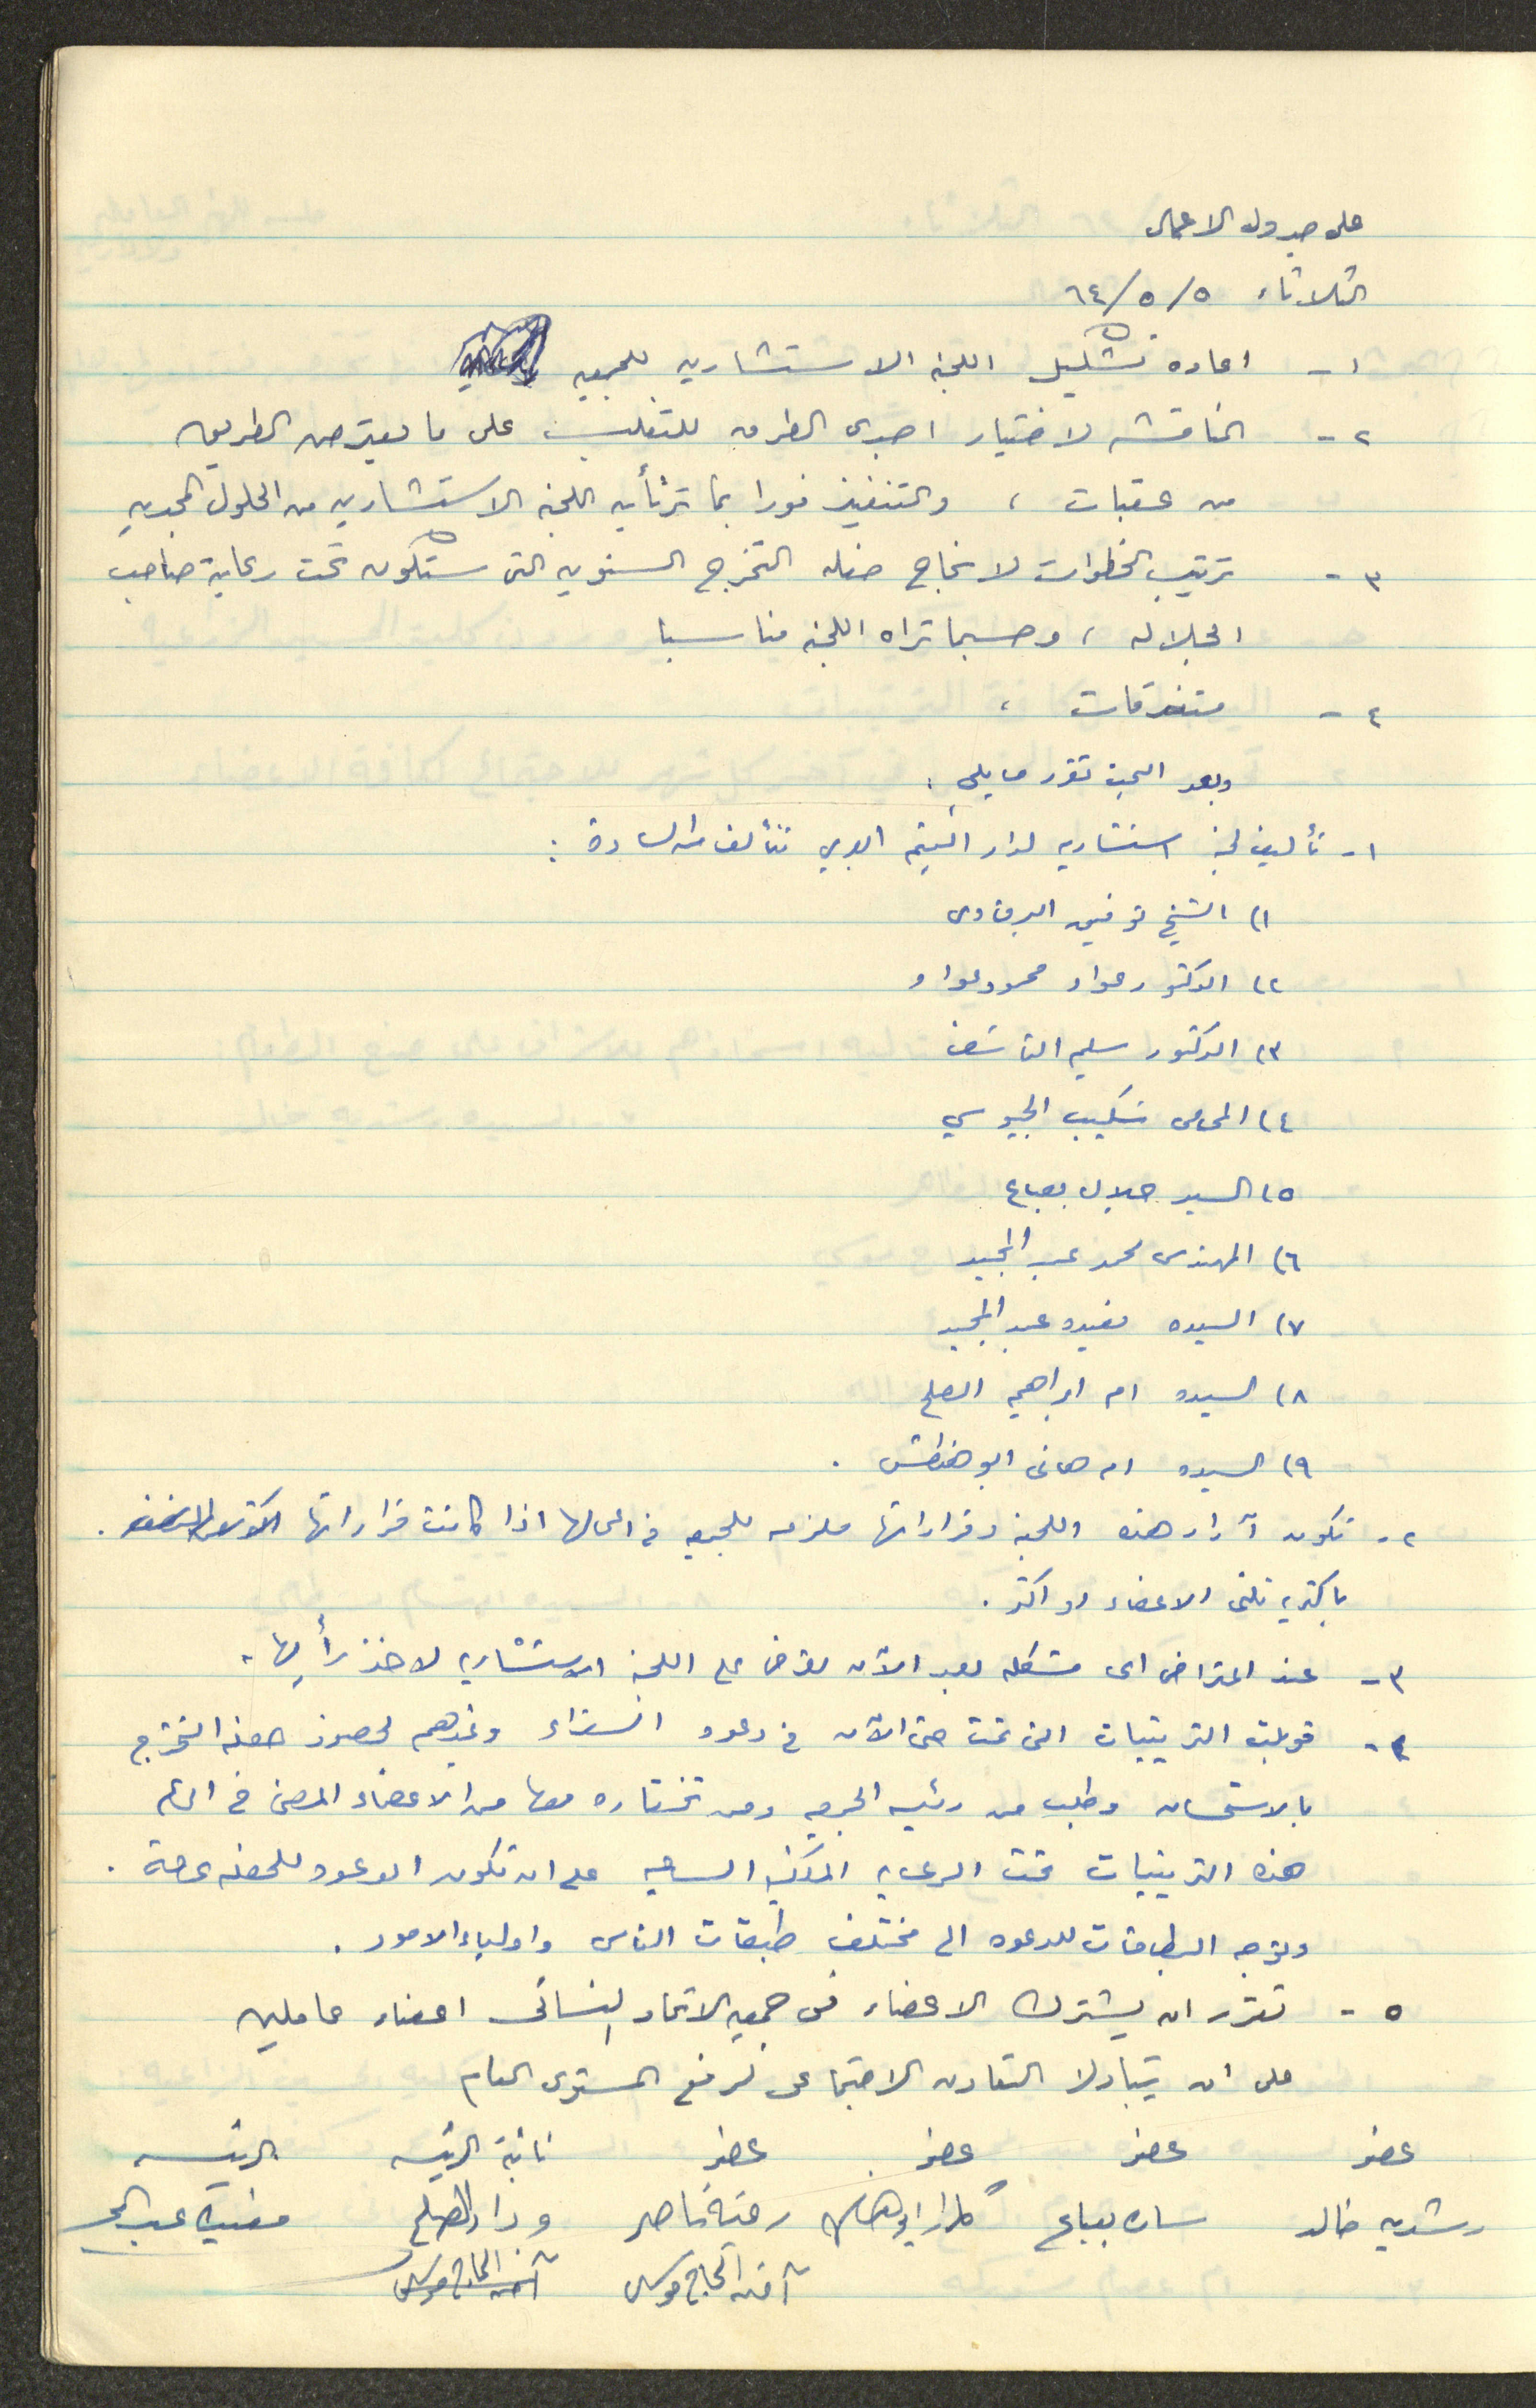 على جدول الاعمال
الثلاثاء ٥/٥/٦٤
١- اعاده تشكيل اللجنه الاستشاريه للجمعيه
٢- المناقشه لاختيار اجدى الطرق للتغلب على ما يعترض الطريق
من عقبات ، والتنفيذ فورا بما ترتأيه اللجنه الاستشاريه من الحلول المجديه
٣- ترتيب الخطوات لانجاح حفله التخرج السنويه التى ستكون تحت رعاية صاحب
الجلاله ، وحسبما تراه اللجنه مناسبا
٤- متفرقات ،
وبعد البحث تقرر ما يلي :
١- تأليف لجنة استشاريه لدار اليتيم العربي تتألف من السادة :
١) الشيخ توفيق البرقاوى
٢) الدكتور عواد محمود عواد
٣) الدكتور سليم الناشف
٤) المحامى شكيب الجيوسي
٥) السيد جلال بعباع
٦) المهندس محمد عبد المجيد
٧) السيده مفيده عبد المجيد
٨) السيده ام ابراهيم الصلح
٩) السيده ام هانى ابو هنطش .
٢- تكون آراء هذه اللجنة وقراراتها ملزمه للجمعيه في اعمالها اذا كانت قراراتها
باكثرية ثلثى الاعضاء او اكثر .
٣- عند اعتراض اى مشكله بعد الآن تعرض على اللجنة الاستشاريه لاخذ رأيها .
٤- قوبلت الترتيبات التى تمت حتى الآن في دعوة السفراء وغيرهم لحضور حفله التخرج
بالاستحسان وطلب من رئيسة الجمعيه ومن تختاره معها من الاعضاء المضى في اتمام
هذه الترتيبات تحت الرعاية الملكيه الساميه على ان تكون الدعوه للحفله عامة .
وتوجه البطاقات للدعوه الى مختلف طبقات الناس واولياء الامور .
٥- تقرر ان يشترك الاعضاء فى جمعيه الاتحاد النسائى اعضاء عاملين
على ان يتبادلا التعاون الاجتماعى لرفع المستوى العام
عضو عضو عضو عضو نائبة الرئيسه الرئيسه
رشديه خالد ساره بعباع رقية ناصر وداد الصلح مفيده عبد المجيد
آمنه الحاج موسى آمنه الحاج موسى